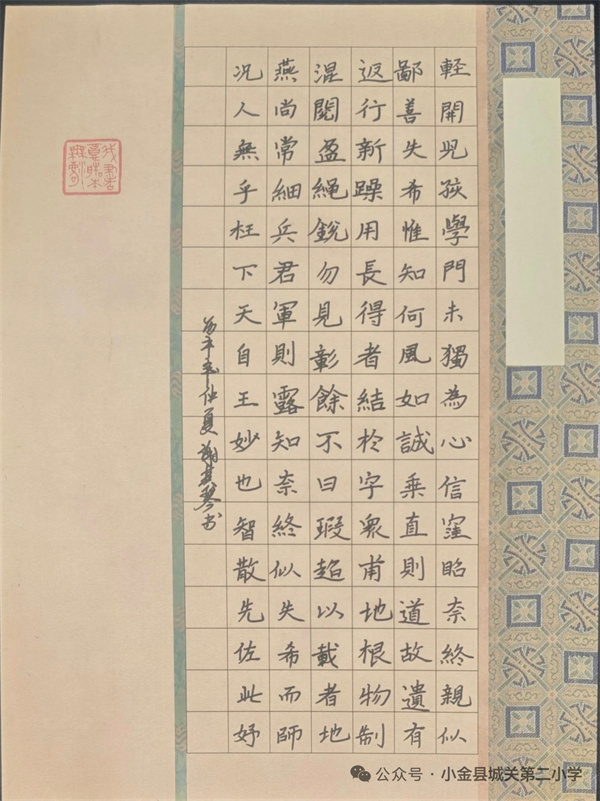 輕開児孩學門未獨為心信窪眙奈終親似
鄙善失希惟知何風如誠乗直則道故遺有
返行新躁用長得者結於字衆甫地根物制
混閱盈繩銳勿見彰餘不曰瑕超以載者地
燕尚常細兵君軍則露知奈終似失希而師
况人無乎枉下天自王妙也智散先佐此妤
仲夏謝其琴书
公众号·小金县城关第二小学